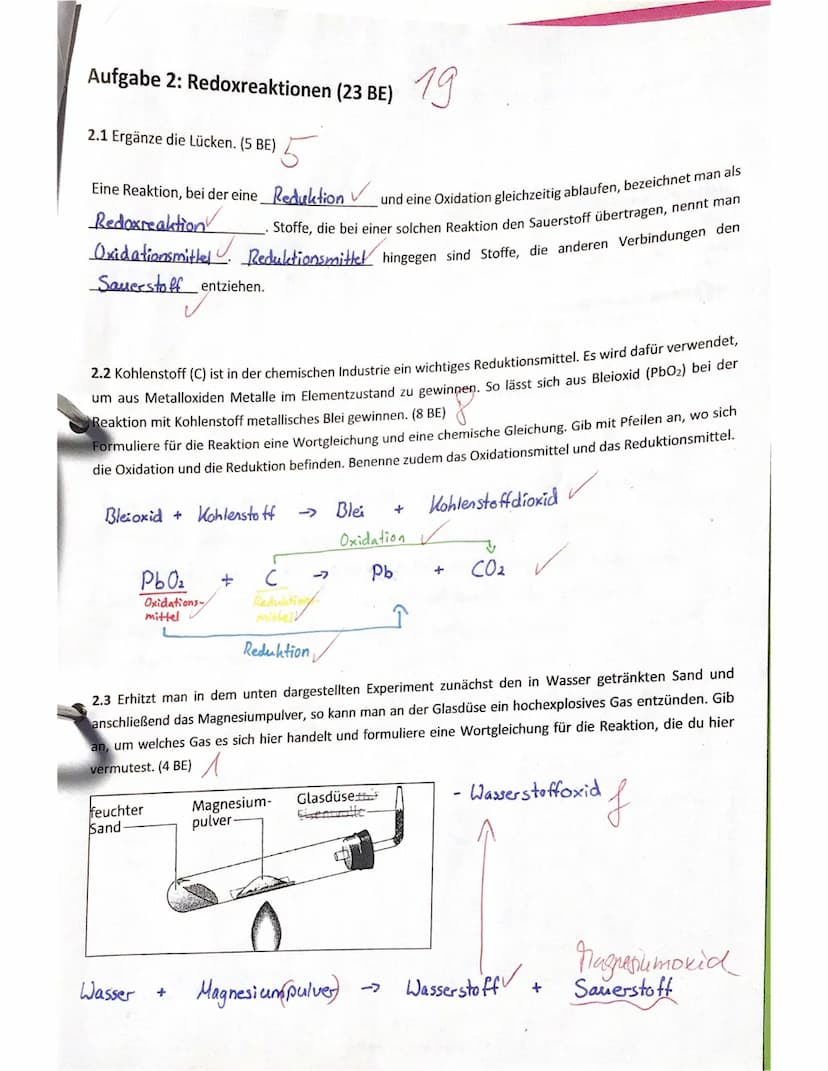 Aufgabe 2: Redoxreaktionen (23 BE) 19
2.1 Ergänze die Lücken. (5 BE) 5
Eine Reaktion, bei der eine Reduktion und eine Oxidation gleichzeitig ablaufen, bezeichnet man als
Redoxreaktion. Stoffe, die bei einer solchen Reaktion den Sauerstoff übertragen, nennt man
Oxidationsmittel. Reduktionsmittel hingegen sind Stoffe, die anderen Verbindungen den
Sauerstoff entziehen.
2.2 Kohlenstoff (C) ist in der chemischen Industrie ein wichtiges Reduktionsmittel. Es wird dafür verwendet,
um aus Metalloxiden Metalle im Elementzustand zu gewinnen. So lässt sich aus Bleioxid (PbO₂) bei der
Reaktion mit Kohlenstoff metallisches Blei gewinnen. (8 BE) 8
Formuliere für die Reaktion eine Wortgleichung und eine chemische Gleichung. Gib mit Pfeilen an, wo sich
die Oxidation und die Reduktion befinden. Benenne zudem das Oxidationsmittel und das Reduktionsmittel.
Bleioxid + Kohlenstoff → Blei + Kohlenstoffdioxid
Oxidation
PbO₂ + C → Pb + CO₂
Oxidations- Reduktions-
mittel mittel
Reduktion
2.3 Erhitzt man in dem unten dargestellten Experiment zunächst den in Wasser getränkten Sand und
anschließend das Magnesiumpulver, so kann man an der Glasdüse ein hochexplosives Gas entzünden. Gib
an, um welches Gas es sich hier handelt und formuliere eine Wortgleichung für die Reaktion, die du hier
vermutest. (4 BE) 1
feuchter Magnesium- Glasdüse
Sand pulver Eisenwolle
- Wasserstoffoxid f
Magnesiumoxid
Wasser + Magnesium(pulver) → Wasserstoff + Sauerstoff